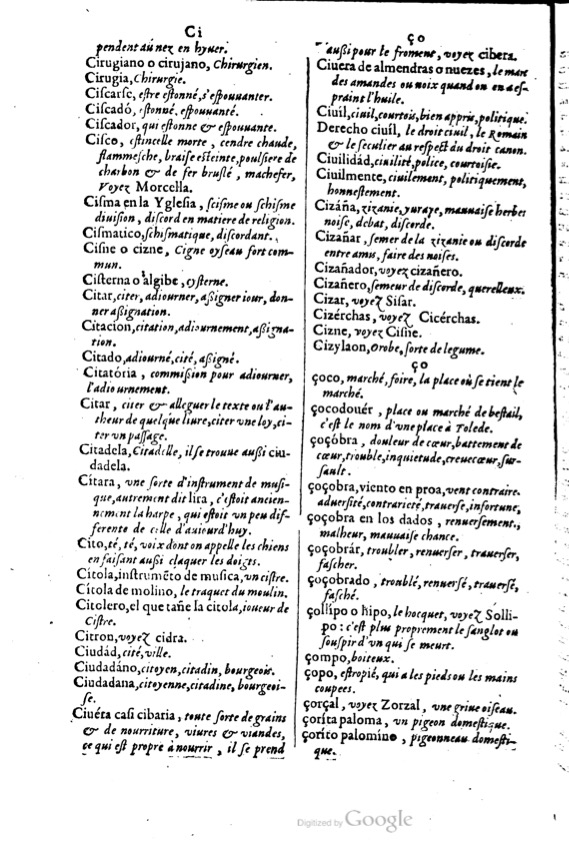 Ci
pendent au nez en hyuer.
Cirugiano o cirujano, Chirurgien.
Cirugia, Chirurgie.
Ciſcarſe, eſtre eſtonné, s'eſpouuanter.
Ciſcadó, eſtonné, eſpouuanté.
Ciſcador, qui eſtonne & eſpouuante.
Ciſco, eſtincelle morte, cendre chaude,
flammeſche, braiſe eſteinte, pouſsiere de
charbon & de fer bruſlé, machefer,
Voyez Morcella.
Ciſma en la Ygleſia, ſciſme ou ſchiſme
diuiſion, diſcord en matiere de religion.
Ciſmatico, ſchiſmatique, diſcordant.
Ciſne o cizne, Cigne oyſeau fort com-
mun.
Ciſterna o algibe, cyſterne.
Citar, citer, adiourner, aſsigner iour, don-
ner aſsignation.
Citacion, citation, adiournement, aſsigna-
tion.
Citado, adiourné, cité, aſsigné.
Citatória, commiſsion pour adiourner,
l'adiournement.
Citar, citer & alleguer le texte ou l'au-
theur de quelque liure, citer vne loy, ci-
ter vn paſſage.
Citadela, Citadelle, il ſe trouue auſsi ciu-
dadela.
Cítara, vne ſorte d'inſtrument de muſi-
que, autrement dit lira, c'eſtoit ancien-
nement la harpe, qui eſtoit vn peu dif-
ferente de celle d'auiourd'huy.
Cito, té, té, voix dont on appelle les chiens
en faiſant auſsi claquer les doigts.
Cítola, inſtrumēto de muſica, vn ciſtre.
Cítola de molino, le traquet du moulin.
Citolero, el que tañe la citola, ioueur de
Ciſtre.
Citron, voyez cidra.
Ciudád, cité, ville.
Ciudadáno, citoyen, citadin, bourgeois.
Ciudadana, citoyenne, citadine, bourgeoi-
ſe.
Ciuéta caſi cibaria, toute ſorte de grains
& de nourriture, viures & viandes,
ce qui eſt propre à nourrir, il ſe prend
ço
auſsi pour le froment, voyez cibera.
Ciuera de almendras o nuezes, le marc
des amandes ou noix quand on en a eſ-
praint l'huile.
Ciuíl, ciuil, courtois, bien appris, politique.
Derecho ciuíl, le droit ciuil, le Romain
& le ſeculier au reſpect du droit canon.
Ciuilidád, ciuilité, police, courtoiſie.
Ciuilmente, ciuilement, politiquement,
honneſtement.
Cizáña, zizanie, yuraye, mauuaiſe herbe:
noiſe, debat, diſcorde.
Cizañar, ſemer de la zizanie ou diſcorde
entre amis, faire des noiſes.
Cizañador, voyez cizañero.
Cizañero, ſemeur de diſcorde, querelleux.
Cizar, voyez Siſar.
Cizérchas, voyez Cicérchas.
Cizne, voyez Ciſne.
Cizylaon, Orobe, ſorte de legume.
ço
çoco, marché, foire, la place où ſe tient le
marché.
çocodouér, place ou marché de beſtail,
c'eſt le nom d'vne place à Tolede.
çoçóbra, douleur de cœur, battement de
cœur, trouble, inquietude, creuecœur, ſur-
ſault.
çoçobra, viento en proa, vent contraire.
aduerſité, contrarieté, trauerſe, infortune,
çoçobra en los dados, renuerſement,
malheur, mauuaiſe chance.
çoçobrár, troubler, renuerſer, trauerſer,
faſcher.
çoçobrado, troublé, renuerſé, trauerſé,
faſché.
çollípo o hipo, le hocquet, voyez Solli-
po: c'eſt plus proprement le ſanglot ou
ſouſpir d'vn qui ſe meurt.
çompo, boiteux.
çopo, eſtropié, qui a les pieds ou les mains
coupees.
çorçal, voyez Zorzal, vne griue oiſeau.
çoríta paloma, vn pigeon domeſtique.
çoríto palomino, pigeonneau domeſti-
que.
Digitized by Google